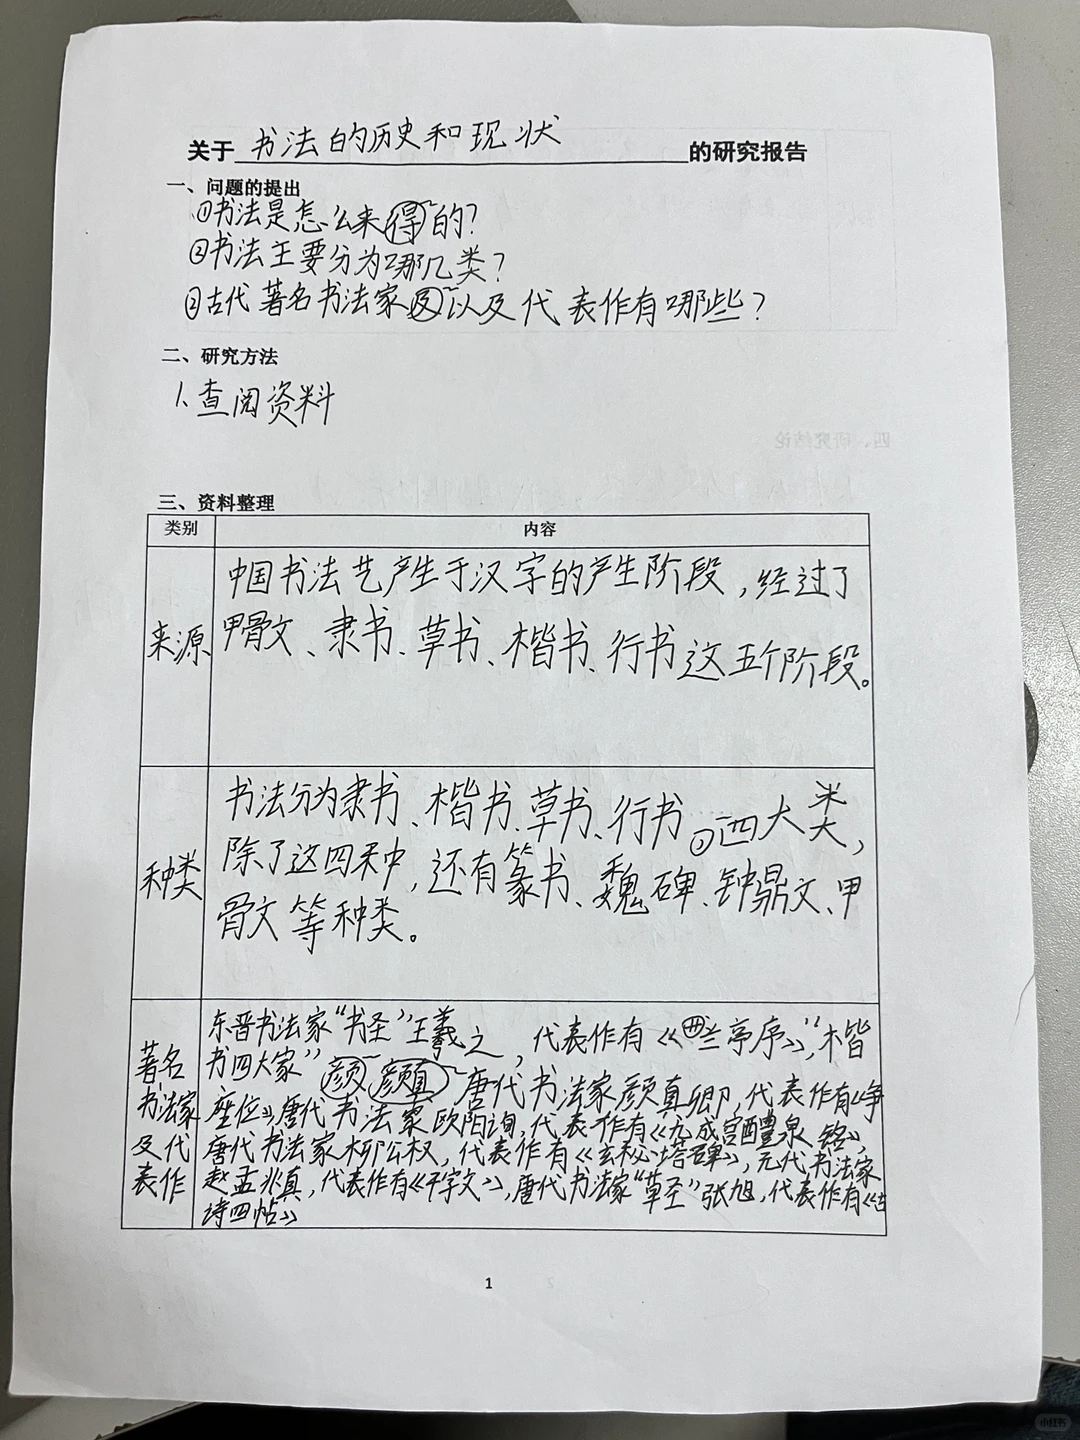 关于 书法的历史和现状 的研究报告
一、问题的提出
①书法是怎么来得的?
②书法主要分为哪几类?
②古代著名书法家及以及代表作有哪些?
二、研究方法
1.查阅资料
四、研究结论
三、资料整理
类别 内容
来源
中国书法艺产生于汉字的产生阶段,经过了
甲骨文、隶书、草书、楷书、行书这五个阶段。
种类
书法分为隶书、楷书、草书、行书。四大类,
除了这四种,还有篆书、魏碑、钟鼎文、甲
骨文等种类。
著名
书法家
及代
表作
东晋书法家“书圣”王羲之,代表作有《兰亭序》,“楷
书四大家”颜颜真唐代书法家颜真卿,代表作有《争
座位》,唐代书法家欧阳询,代表作有《九成宫醴泉铭》,
唐代书法家柳公权,代表作有《玄秘塔碑》,元代书法家
赵孟兆真,代表作有《千字文》,唐代书法家“草圣”张旭,代表作有《古
诗四帖》
1
2
小红书